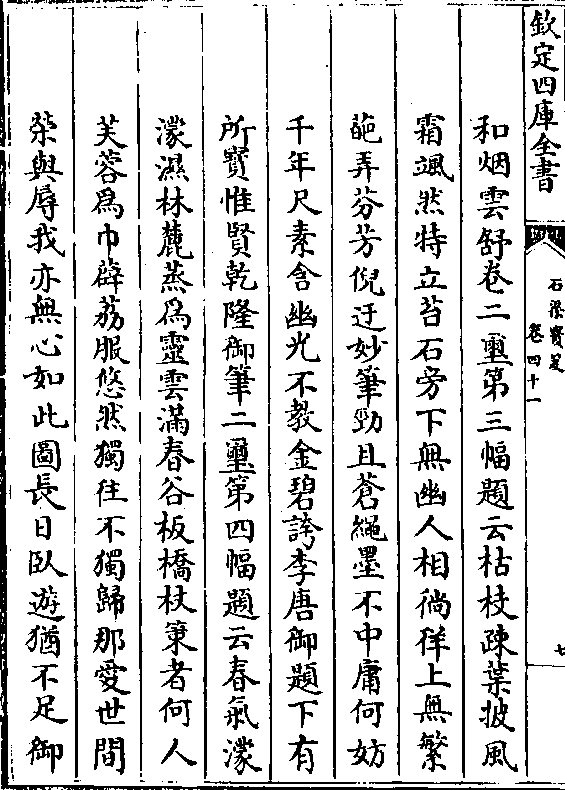 欽定四庫全書
石渠寶笈
卷四十一
七
和烟雲舒卷二璽第三幅題云枯枝疎葉披風
霜颯然特立苔石旁下無幽人相徜徉上無繁
葩弄芬芳倪迂妙筆勁且蒼繩墨不中庸何妨
千年尺素含幽光不教金碧誇李唐御題下有
所寶惟賢乾隆御筆二璽第四幅題云春氣濛
濛濕林麓蒸為靈雲滿春谷板橋杖策者何人
芙蓉為巾薜荔服悠然獨往不獨歸那愛世間
榮與辱我亦無心如此圖長日臥遊猶不足御